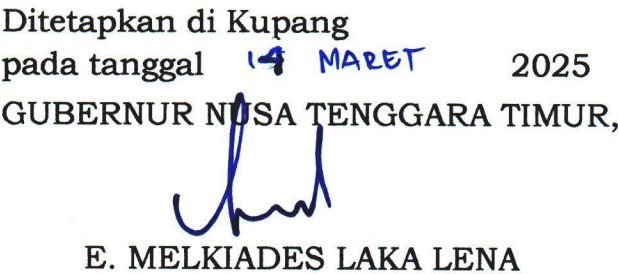 Ditetapkan di Kupang
pada tanggal 14 MARET 2025
GUBERNUR NUSA TENGGARA TIMUR,
E. MELKIADES LAKA LENA